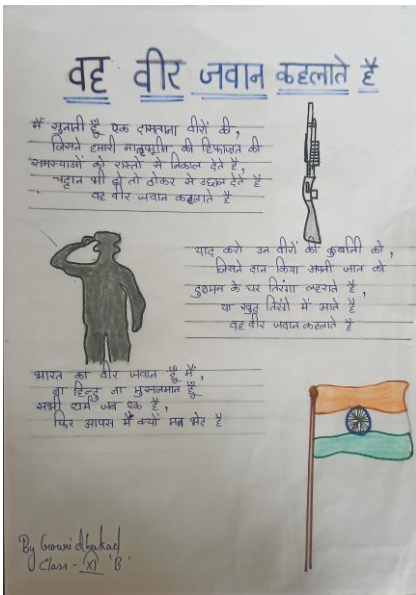 वह वीर जवान कहलाते है
मैं सुनाती हूँ एक दास्ताना वीरों की,
जिसने हमारी मातृभूमि की हिफाजत की
समस्याओं को रास्तो से निकाल देते है,
चट्टान भी हो तो ठोकर से उछाल देते है
वह वीर जवान कहलाते है
याद करो उन वीरों की कुर्बानी को,
जिसने दान किया अपनी जान को
दुश्मन के घर तिरंगा लहराते है,
या खुद तिरंगे में आते है
वह वीर जवान कहलाते है
भारत का वीर जवान हूँ मैं,
ना हिन्दु ना मुसलमान हूँ
सभी धर्म जब एक है,
फिर आपस में क्यों मत भेद है
By Gowri dhakad
Class - XI 'B'